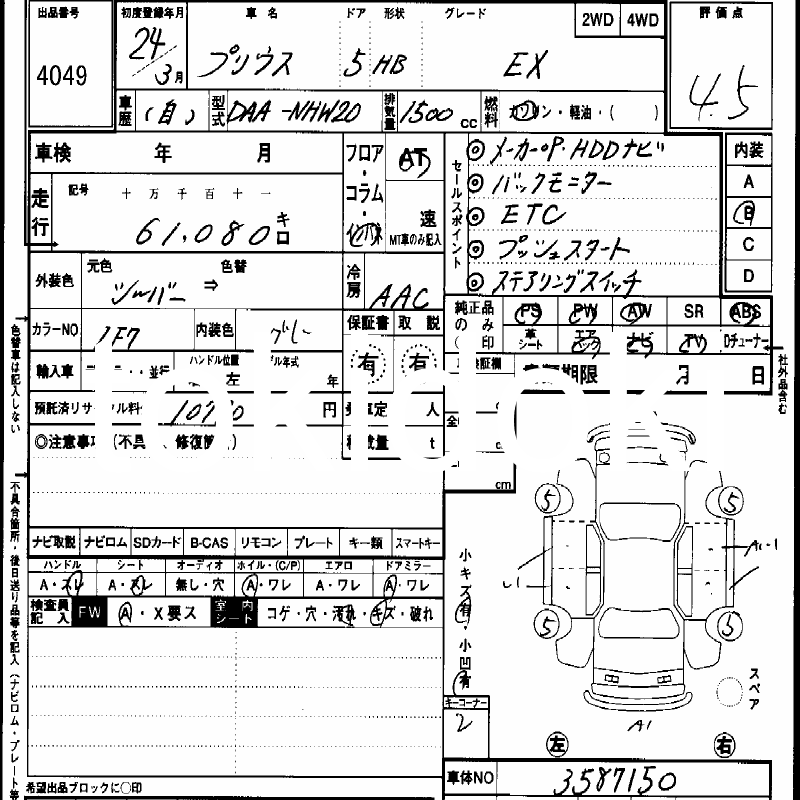 出品番号 4049
初度登録年月 24/3月
車名 プリウス
ドア 5
形状 HB
グレード EX
2WD 4WD
評価点 4.5
車歴 (自)
型式 DAA-NHW20
排気量 1500cc
燃料 ガソリン・軽油・( )
車検 年 月
フロア・コラム・インパネ
AT
速
MT車のみ記入
セールスポイント
◎メーカーOP.HDDナビ
◎バックモニター
◎ETC
◎プッシュスタート
◎ステアリングスイッチ
内装
A
B
C
D
走行
記号 十 万 千 百 十 一
61,080 キロ
外装色 元色 シルバー ⇒ 色替
冷房 AAC
カラーNO. 1F7
内装色 グレー
保証書 取説
有 有
純正品のみ印
PS PW AW SR ABS
革シート エアバック ナビ TV Dチューナー
輸入車
並行
ハンドル位置
左
年式
年
期限 月 日
社外品含む
預託済リサ
ル料
円
定 人
量 t
◎注意事
(不具
、修復
cm
色替車は記入しない
不具合箇所・後日送り品等を記入(ナビロム・プレート等
ナビ取説 ナビロム SDカード B-CAS リモコン プレート キー類 スマートキー
ハンドル シート オーディオ ホイル・(C/P) エアロ ドアミラー
A・スレ A・スレ 無し・穴 A・ワレ A・ワレ A・ワレ
検査員記入 FW A・X要ス 室内シート コゲ・穴・汚れ・キズ・破れ
小キズ有・小凹有
キーコーナー
2
5 5
5 5
A1
スペア
左 右
希望出品ブロックに○印
車体NO 3587150